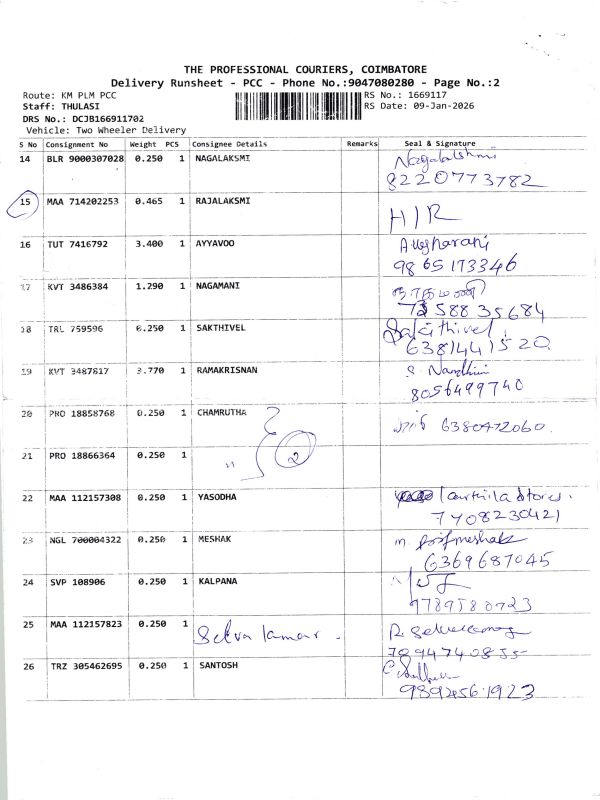 THE PROFESSIONAL COURIERS, COIMBATORE
Delivery Runsheet - PCC - Phone No.:9047080280 - Page No.:2
Route: KM PLM PCC
RS No.: 1669117
Staff: THULASI
RS Date: 09-Jan-2026
DRS No.: DCJB166911702
Vehicle: Two Wheeler Delivery
S No Consignment No Weight PCS Consignee Details Remarks Seal & Signature
14 BLR 9000307028 0.250 1 NAGALAKSMI Nagalakshmi
8220773782
15 MAA 714202253 0.465 1 RAJALAKSMI H/R
16 TUT 7416792 3.400 1 AYYAVOO
9865173346
17 KVT 3486384 1.290 1 NAGAMANI நாகமணி
18 TRL 759596 0.250 1 SAKTHIVEL Sakithivel
6381441520
19 KVT 3487817 3.770 1 RAMAKRISNAN S. Nandhini
8056499740
20 PRO 18858768 0.250 1 CHAMRUTHA 6380472060
21 PRO 18866364 0.250 1 " 2
22 MAA 112157308 0.250 1 YASODHA
7408230421
23 NGL 700004322 0.250 1 MESHAK
6369687045
24 SVP 108906 0.250 1 KALPANA
9789580723
25 MAA 112157823 0.250 1 Selva kumar.
26 TRZ 305462695 0.250 1 SANTOSH